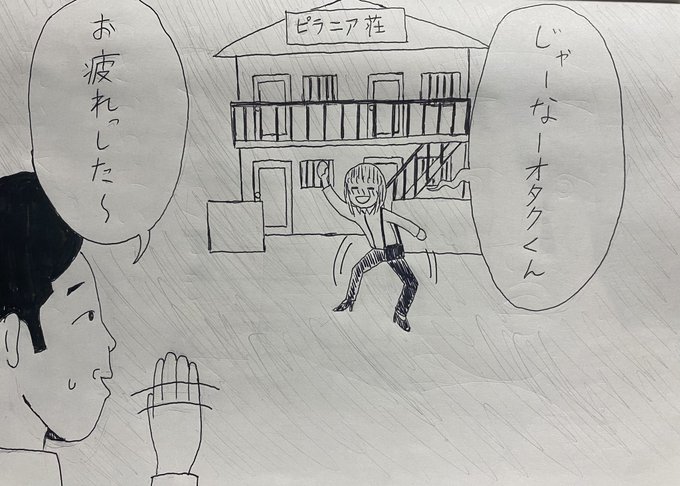 ピラニア荘
じゃーなーオタクくん
お疲れっした〜